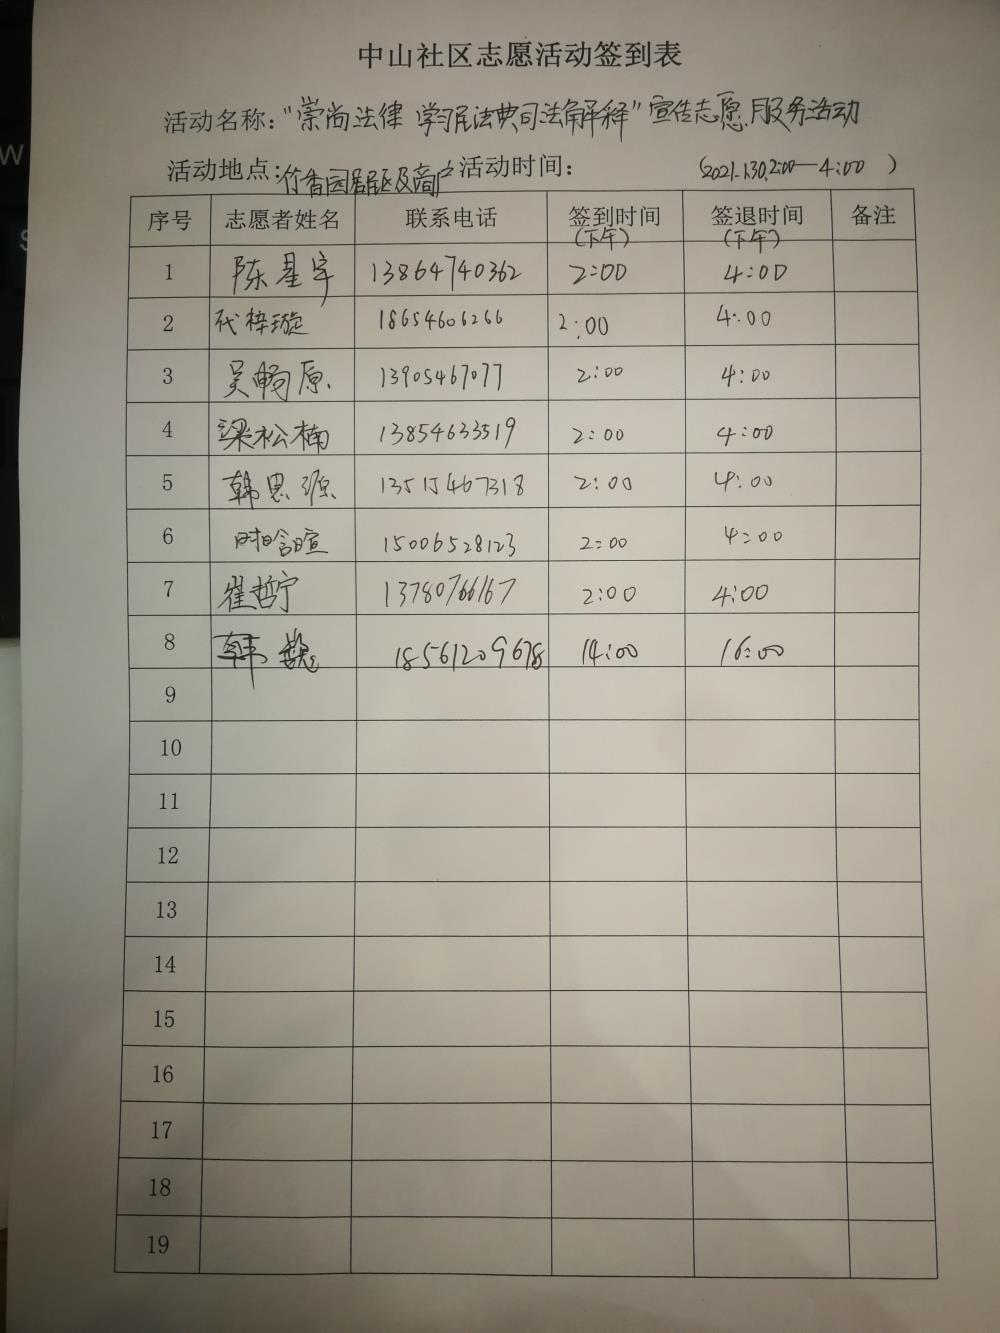 中山社区志愿活动签到表
活动名称：“崇尚法律 学习民法典司法解释”宣传志愿服务活动
活动地点：竹香园居民区及商户 活动时间： （2021.1.30. 2:00—4:00 ）
序号 志愿者姓名 联系电话 签到时间（下午） 签退时间（下午） 备注
1 陈星宇 13864740362 2:00 4:00
2 代梓璇 18654606266 2:00 4:00
3 吴畅原 13905467077 2:00 4:00
4 梁松楠 13854633519 2:00 4:00
5 韩思源 13515467318 2:00 4:00
6 时晗暄 15006528123 2:00 4:00
7 崔哲宁 13780766167 2:00 4:00
8 韩 18561209678 14:00 16:00
9
10
11
12
13
14
15
16
17
18
19
W
S